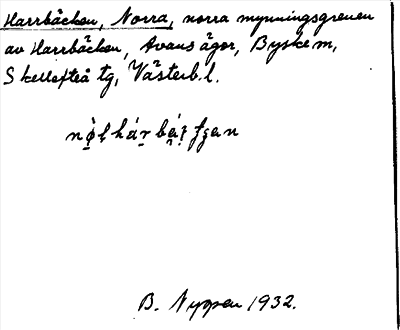 Harrbäcken, Norra, norra mynningsgrenen
av Harrbäcken, Avans ägor, Byske m,
Skellefteå tg, Västerb. l.
B. Nygren 1932.